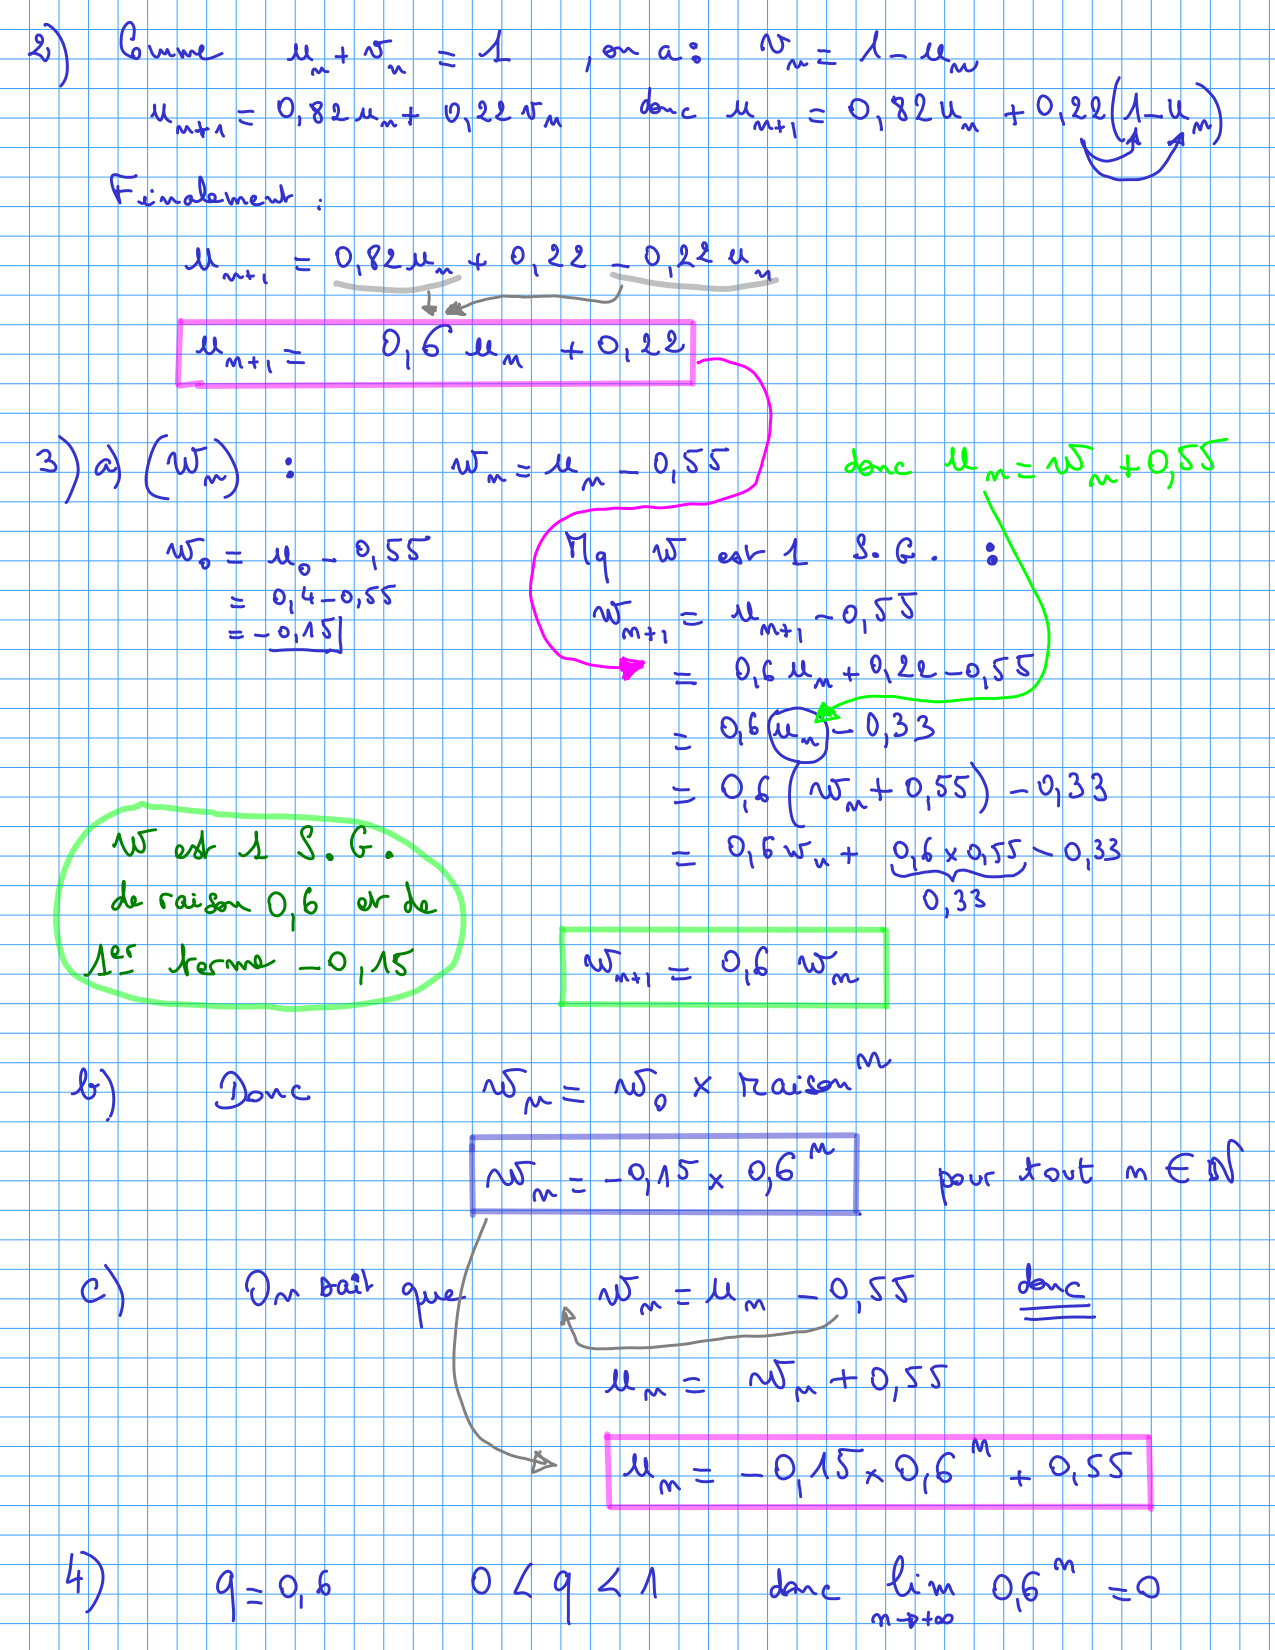 2) Comme uₙ + vₙ = 1 , on a : vₙ = 1 - uₙ
uₙ₊₁ = 0,82 uₙ + 0,22 vₙ donc uₙ₊₁ = 0,82 uₙ + 0,22 (1 - uₙ)
Finalement :
uₙ₊₁ = 0,82 uₙ + 0,22 - 0,22 uₙ
uₙ₊₁ = 0,6 uₙ + 0,22
3) a) (wₙ) : wₙ = uₙ - 0,55 donc uₙ = wₙ + 0,55
w₀ = u₀ - 0,55
= 0,4 - 0,55
= -0,15
Mq w est 1 S.G. :
wₙ₊₁ = uₙ₊₁ - 0,55
= 0,6 uₙ + 0,22 - 0,55
= 0,6 uₙ - 0,33
= 0,6 (wₙ + 0,55) - 0,33
= 0,6 wₙ + 0,6 × 0,55 - 0,33
0,33
wₙ₊₁ = 0,6 wₙ
w est 1 S.G.
de raison 0,6 et de
1er terme -0,15
b) Donc wₙ = w₀ × raisonⁿ
wₙ = -0,15 × 0,6ⁿ pour tout n ∈ ℕ
c) On sait que wₙ = uₙ - 0,55 donc
uₙ = wₙ + 0,55
uₙ = -0,15 × 0,6ⁿ + 0,55
4) q = 0,6 0 < q < 1 donc lim 0,6ⁿ = 0
n→+∞